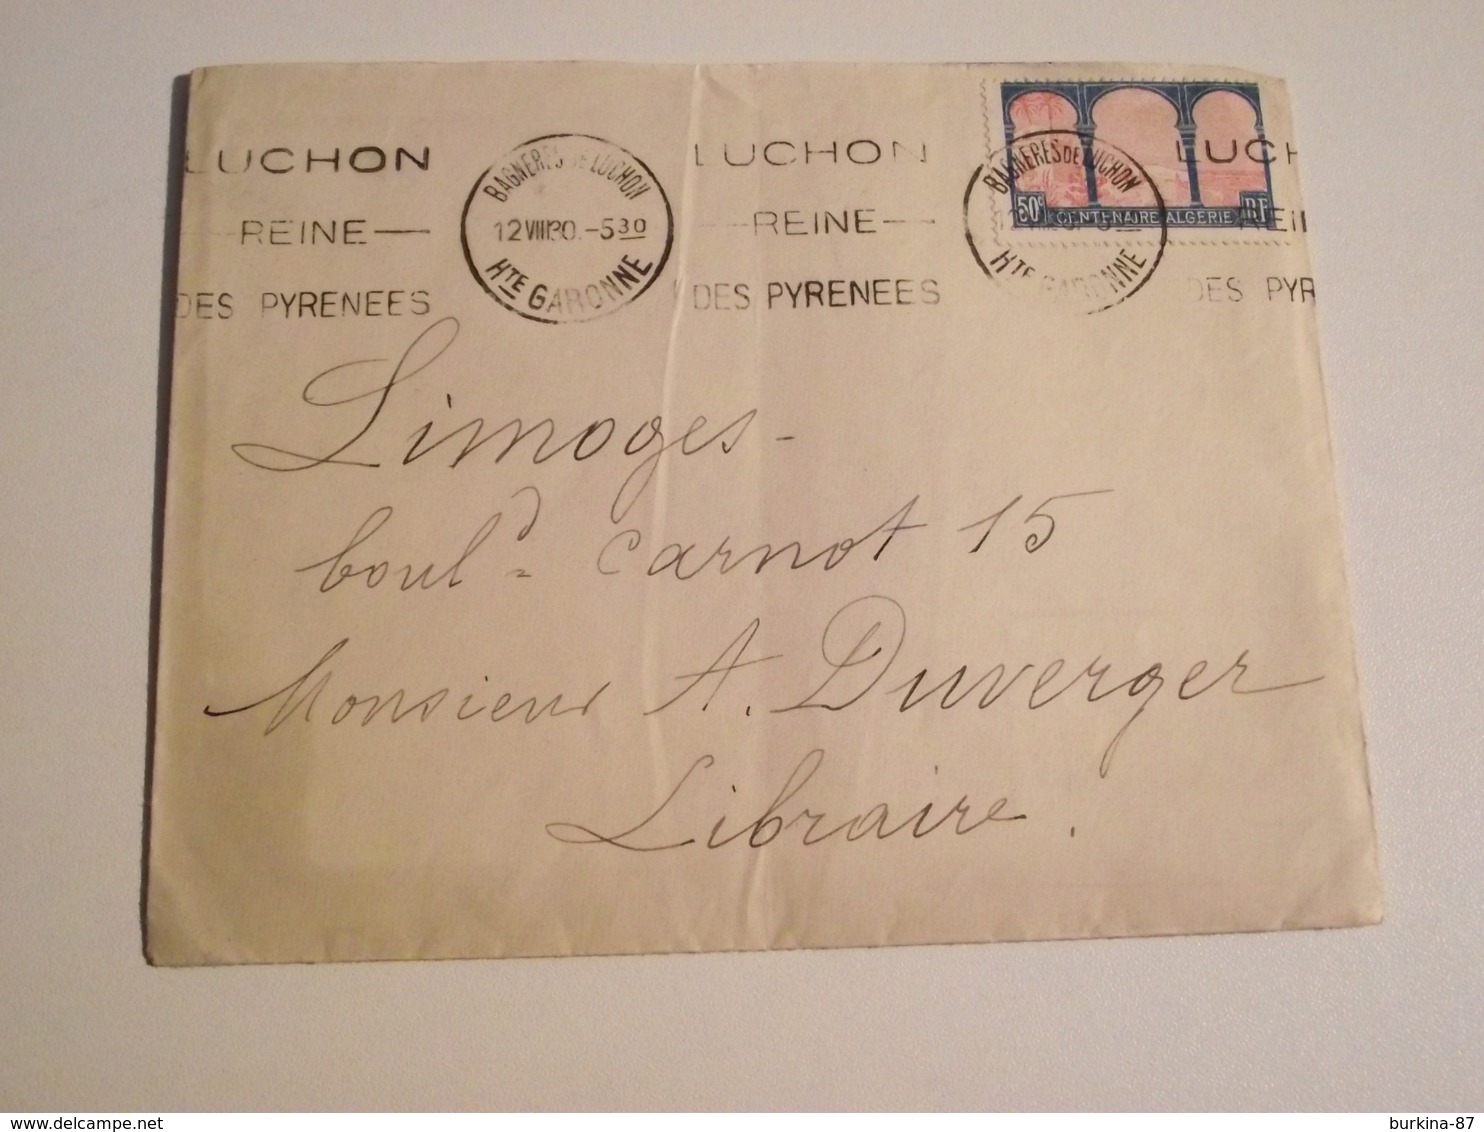 LUCHON
REINE
DES PYRENEES
BAGNERES DE LUCHON
12 VIII 30.-5 30
HTE GARONNE
LUCHON
REINE
DES PYRENEES
BAGNERES DE LUCHON
HTE GARONNE
LUCH
REIN
DES PYR
50c CENTENAIRE ALGERIE RF
Limoges-
boul.d Carnot 15
Monsieur A. Duverger
Libraire.
delcampe.net
burkina-87